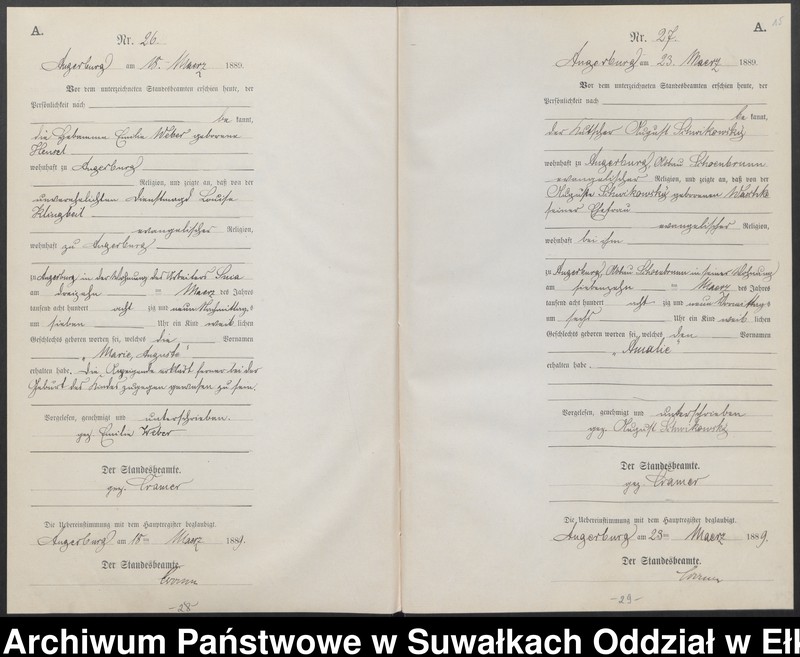 A.
Nr. 26.
Angerburg am 15. Maerz 1889.
Vor dem unterzeichneten Standesbeamten erschien heute, der
Persönlichkeit nach
be kannt,
die Hebamme Emilie Weber geborene
Hensel
wohnhaft zu Angerburg
Religion, und zeigte an, daß von der
unverehelichten Dienstmagd Louise
Klingbeil
evangelischer Religion,
wohnhaft zu Angerburg
zu Angerburg in der Wohnung des Arbeiters
am dreizehn ten Maerz des Jahres
tausend acht hundert acht zig und neun Nachmittags
um sieben Uhr ein Kind weib lichen
Geschlechts geboren worden sei, welches die Vornamen
„Marie, Auguste“
erhalten habe. Die Anzeigende erklärt ferner bei der
Geburt des Kindes zugegen gewesen zu sein.
Vorgelesen, genehmigt und unterschrieben.
gez. Emilie Weber
Der Standesbeamte.
gez. Cramer
Die Uebereinstimmung mit dem Hauptregister beglaubigt.
Angerburg am 15ten Maerz 1889.
Der Standesbeamte.
-28-
A.
Nr. 27.
Angerburg am 23. Maerz 1889.
Vor dem unterzeichneten Standesbeamten erschien heute, der
Persönlichkeit nach
be kannt,
der Kutscher August Schwikowsky
wohnhaft zu Angerburg, Abbau Schoenbrunn
evangelischer Religion, und zeigte an, daß von der
Auguste Schwikowsky geborenen
seiner Ehefrau
evangelischer Religion,
wohnhaft bei ihm
zu Angerburg, Abbau Schoenbrunn in seiner Wohnung
am siebenzehn ten Maerz des Jahres
tausend acht hundert acht zig und neun Vormittags
um sechs Uhr ein Kind weib lichen
Geschlechts geboren worden sei, welches den Vornamen
„Amalie“
erhalten habe.
Vorgelesen, genehmigt und unterschrieben
gez. August Schwikowsky
Der Standesbeamte.
gez. Cramer
Die Uebereinstimmung mit dem Hauptregister beglaubigt.
Angerburg am 23ten Maerz 1889.
Der Standesbeamte.
-29-
Archiwum Państwowe w Suwałkach Oddział w Ełk